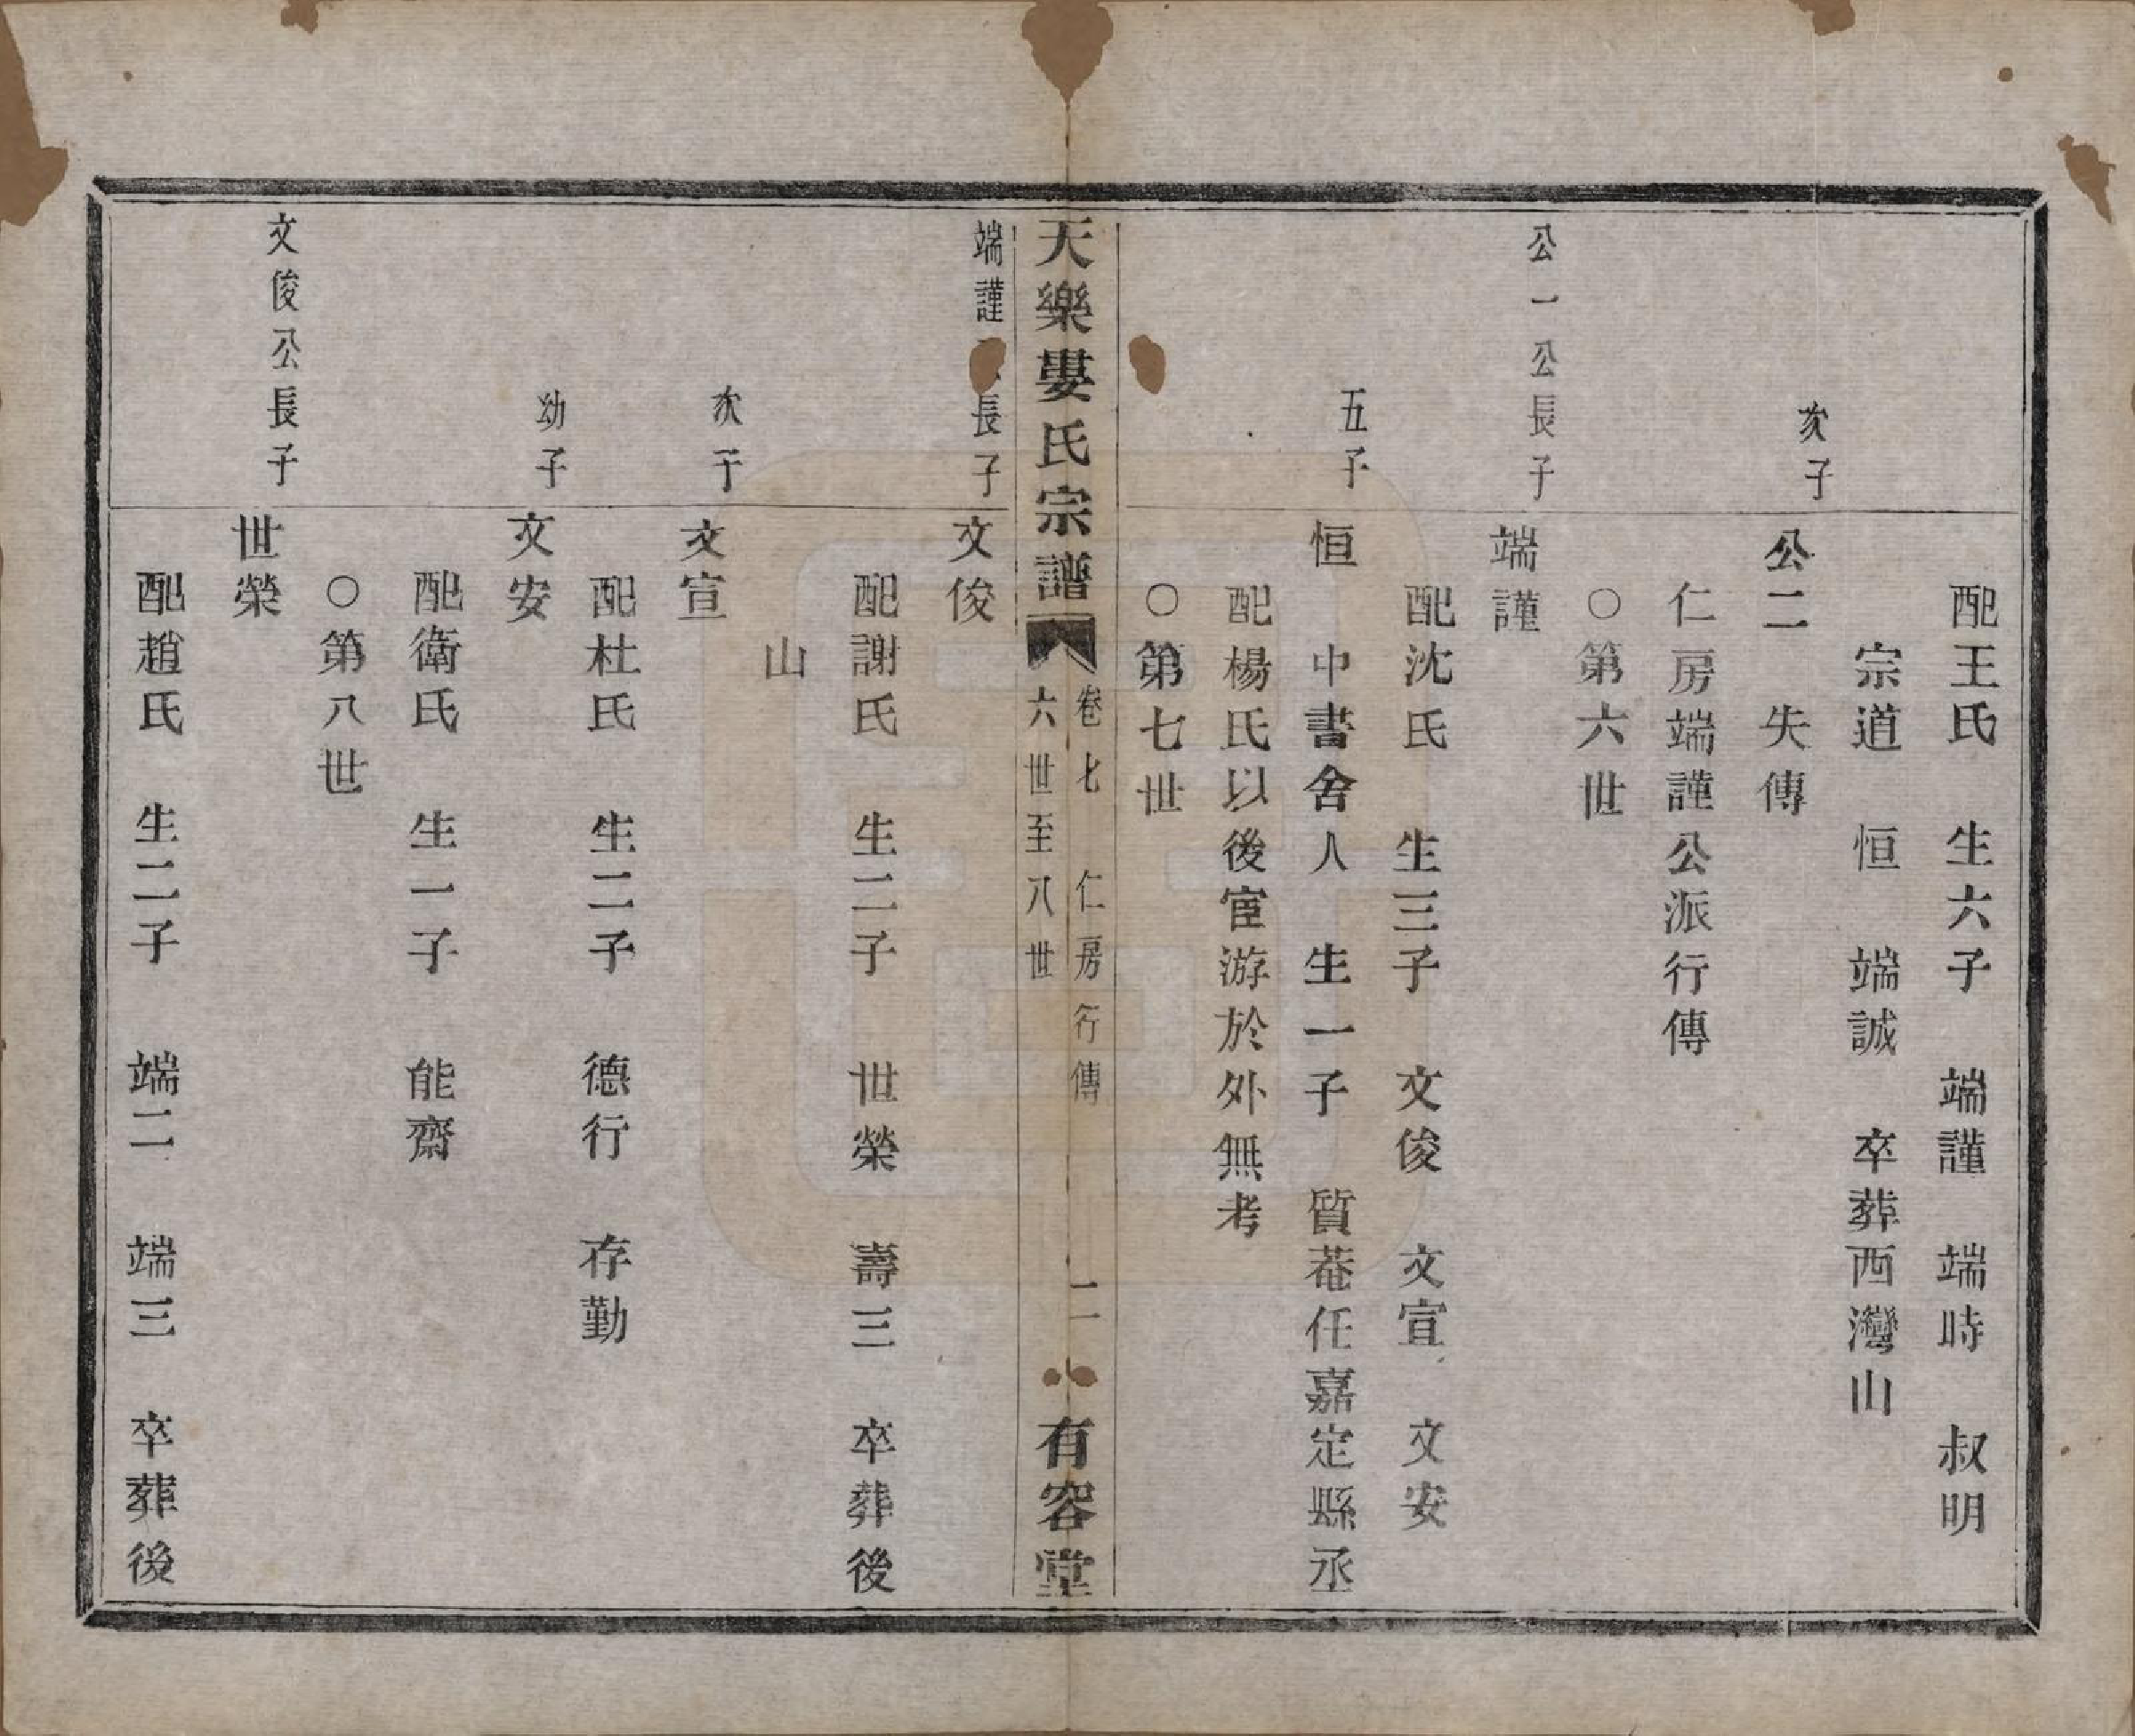 配王氏　生六子　端謹　端時　叔明
宗道　恒　端誠　卒葬西灣山
次子
公二　失傳
仁房端謹公派行傳
○第六世
公一公長子
端謹
配沈氏　生三子　文俊　文宣　文安
五子
恒　中書舍人　生一子　質菴任嘉定縣丞
配楊氏以後宦游於外無考
○第七世
天樂婁氏宗譜
卷七　仁房行傳　二
六世至八世
有容堂
端謹 長子
文俊
配謝氏　生二子　世榮　壽三　卒葬後
山
次子
文宣
配杜氏　生二子　德行　存勤
幼子
文安
配衛氏　生一子　能齋
○第八世
文俊公長子
世榮
配趙氏　生二子　端二　端三　卒葬後